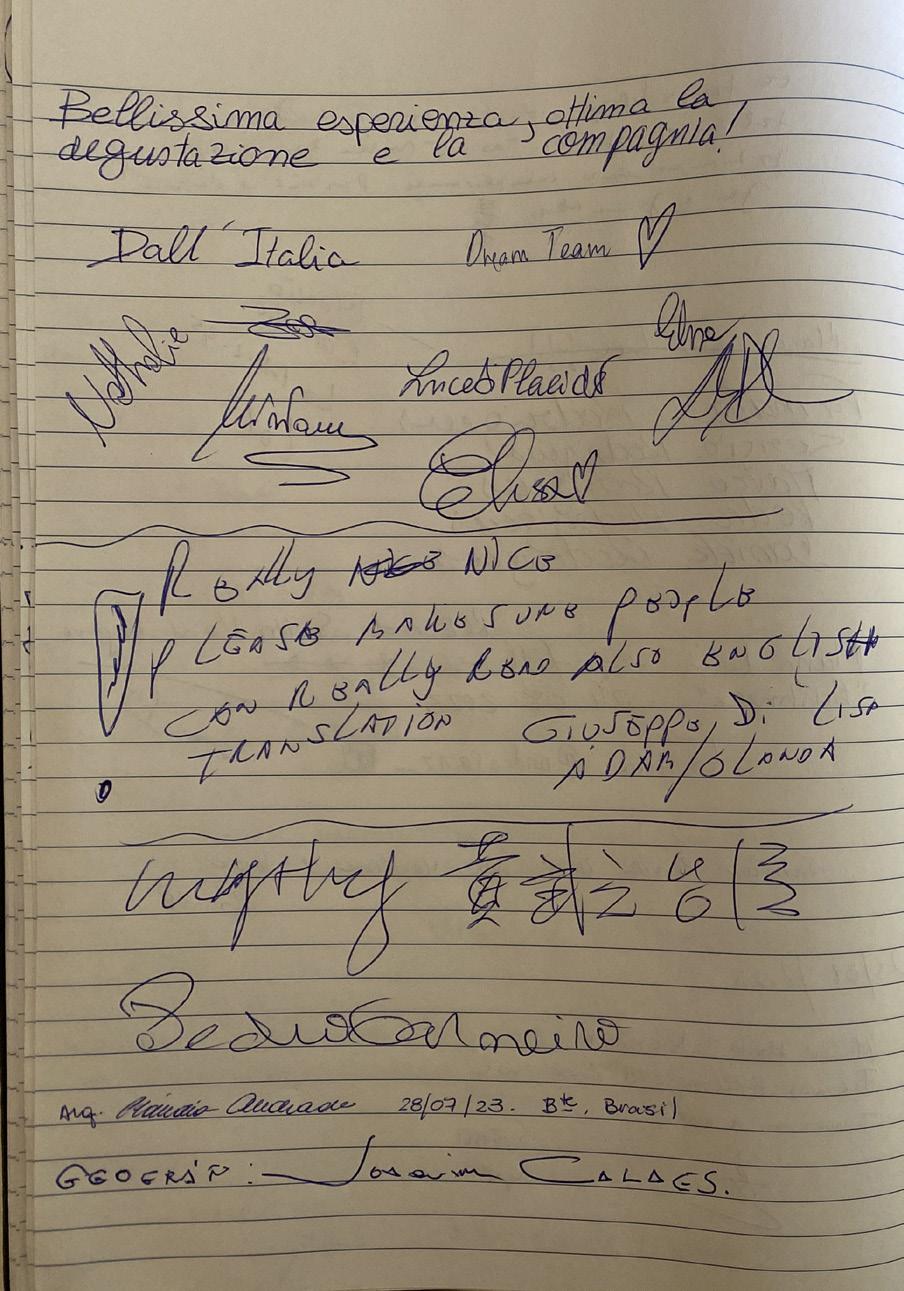 Bellissima esperienza, ottima la
degustazione e la compagnia!
Dall' Italia Dream Team ♡
Nathalie
Miriam
Elisa ♡
REALLY NICE
PLEASE MAKE SURE PEOPLE
CAN REALLY READ ALSO ENGLISH
TRANSLATION GIUSEPPE DI LISA
OLANDA
黄
Pedro Carneiro
Arq. Andrade 28/07/23. Bte, Brasil
GEOGRÁF: Joaquim CALAES.